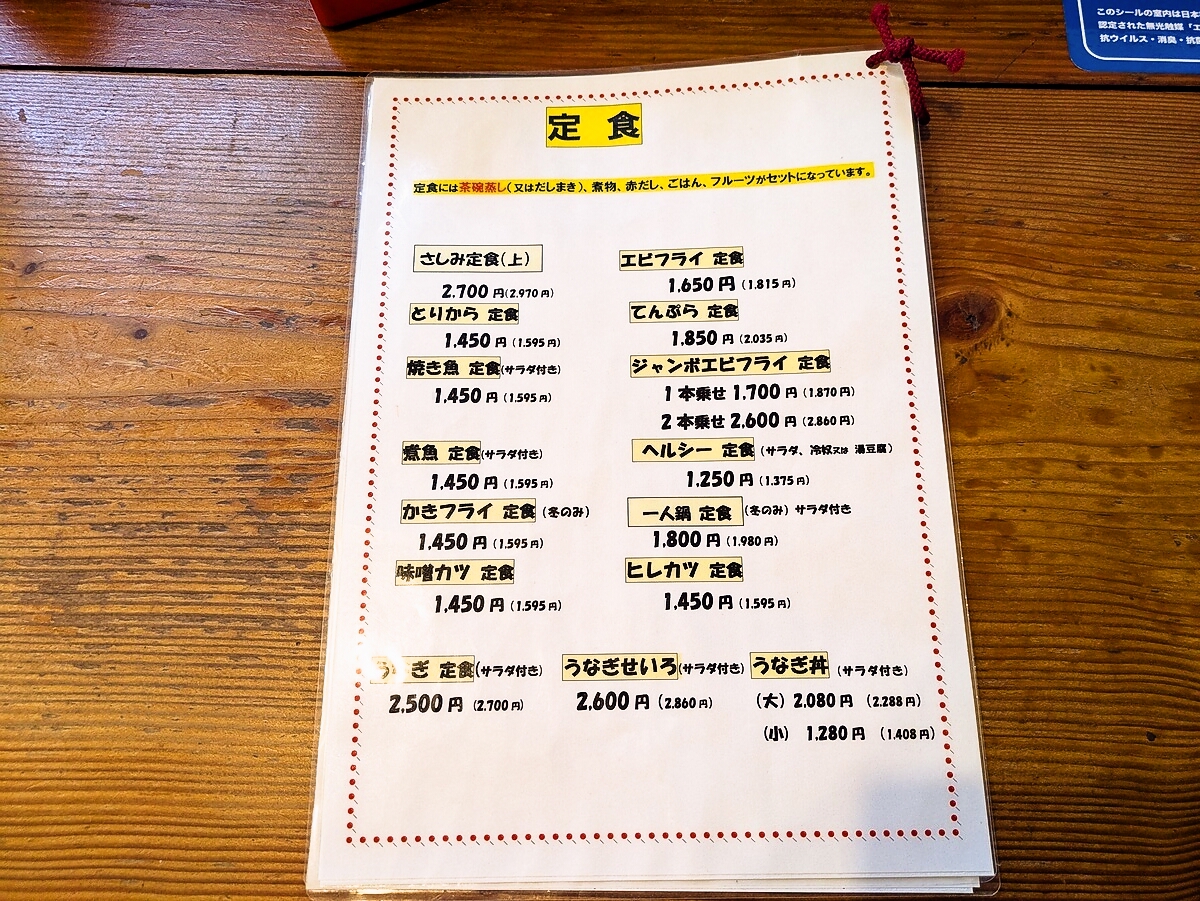 このシールの室内は日本
認定された無光触媒「エ
抗ウイルス・消臭・抗菌
定 食
定食には茶碗蒸し(又はだしまき)、煮物、赤だし、ごはん、フルーツがセットになっています。
さしみ定食(上)
2.700 円(2.970 円)
とりから 定食
1.450 円 (1.595 円)
焼き魚 定食(サラダ付き)
1.450 円 (1.595 円)
煮魚 定食(サラダ付き)
1.450 円 (1.595 円)
かきフライ 定食 (冬のみ)
1.450 円 (1.595 円)
味噌カツ 定食
1.450 円 (1.595 円)
エビフライ 定食
1.650 円 (1.815 円)
てんぷら 定食
1.850 円 (2.035 円)
ジャンボエビフライ 定食
1 本乗せ 1.700 円 (1.870 円)
2 本乗せ 2,600 円 (2.860 円)
ヘルシー 定食 (サラダ、冷奴又は 湯豆腐)
1.250 円 (1.375 円)
一人鍋 定食 (冬のみ) サラダ付き
1.800 円 (1.980 円)
ヒレカツ 定食
1.450 円 (1.595 円)
うなぎ 定食(サラダ付き)
2.500 円 (2.700 円)
うなぎせいろ(サラダ付き)
2.600 円 (2.860 円)
うなぎ丼 (サラダ付き)
(大) 2.080 円 (2.288 円)
(小) 1.280 円 (1.408 円)